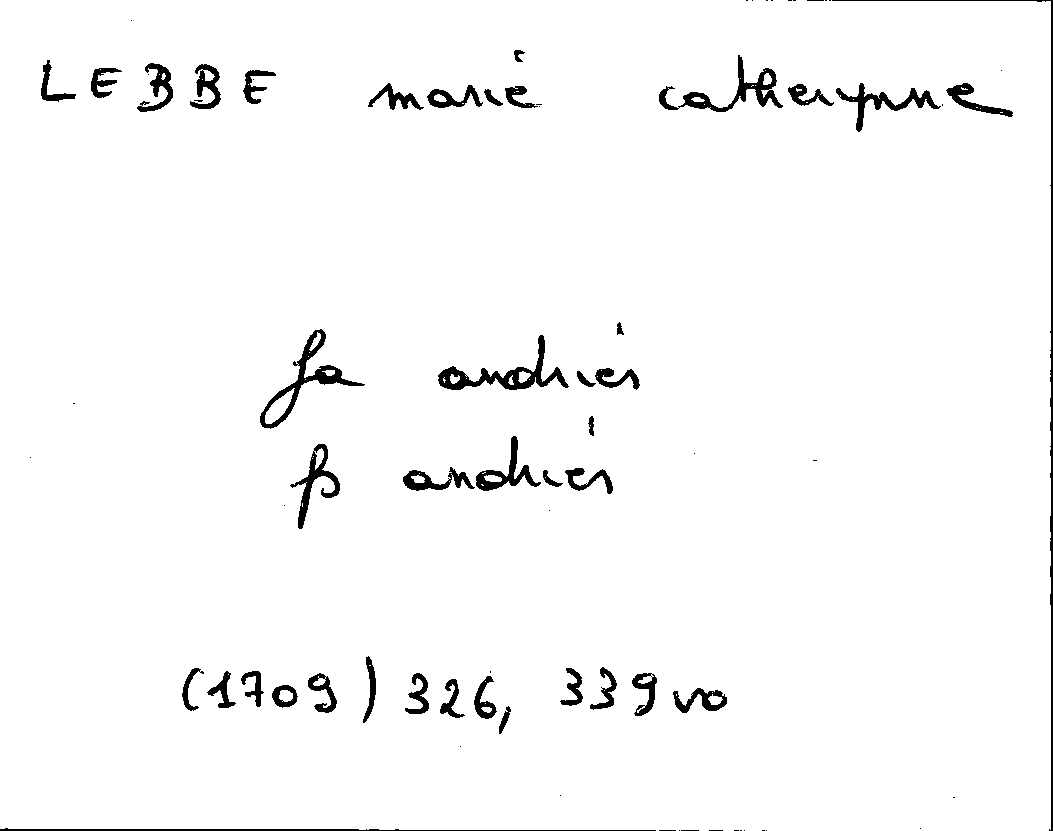 LEBBE marie catherynne
fa andries
fs andries
(1709) 326, 339 vo